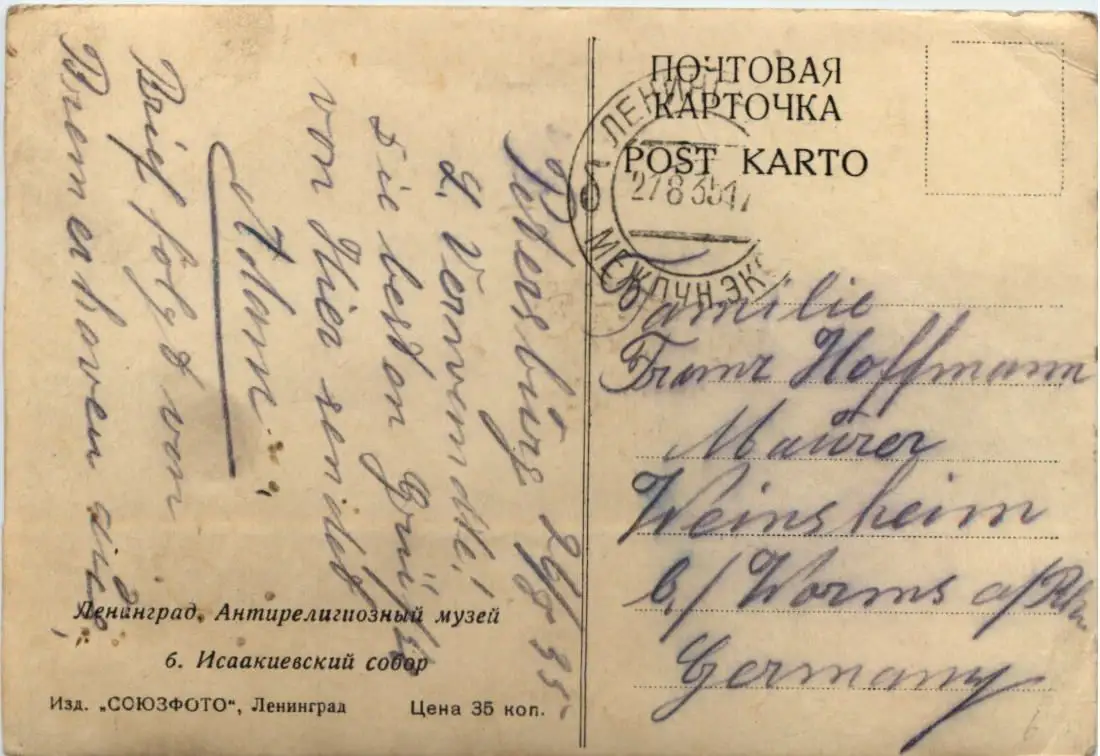 Petersburg 26/8. 35.
L. Verwandte!
Die besten Grüße
von Hier sendet
Adam.
Brief folgt von
Bremerhoven aus.
ПОЧТОВАЯ
КАРТОЧКА
POST KARTO
ЛЕНИНГ
27 8 35 17
МЕЖДУН ЭКС
Familie
Franz Hoffmann
Maurer
Weinsheim
b/ Worms a/Rh.
Germany
Ленинград. Антирелигиозный музей
6. Исаакиевский собор
Изд. „СОЮЗФОТО“, Ленинград Цена 35 коп.